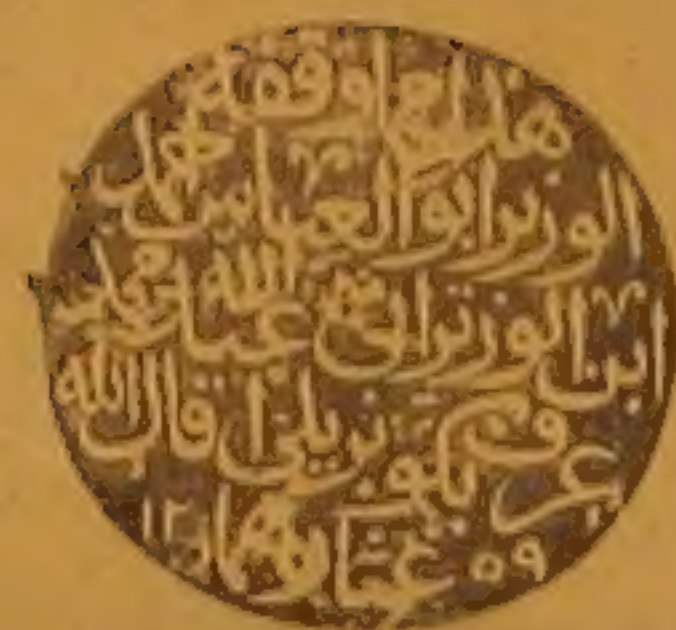 هذا ما وقفه
الوزير ابو العباس احمد
ابن الوزير ابي عبد الله محمد
عرف بكوپريلي اقال الله
عثارهما